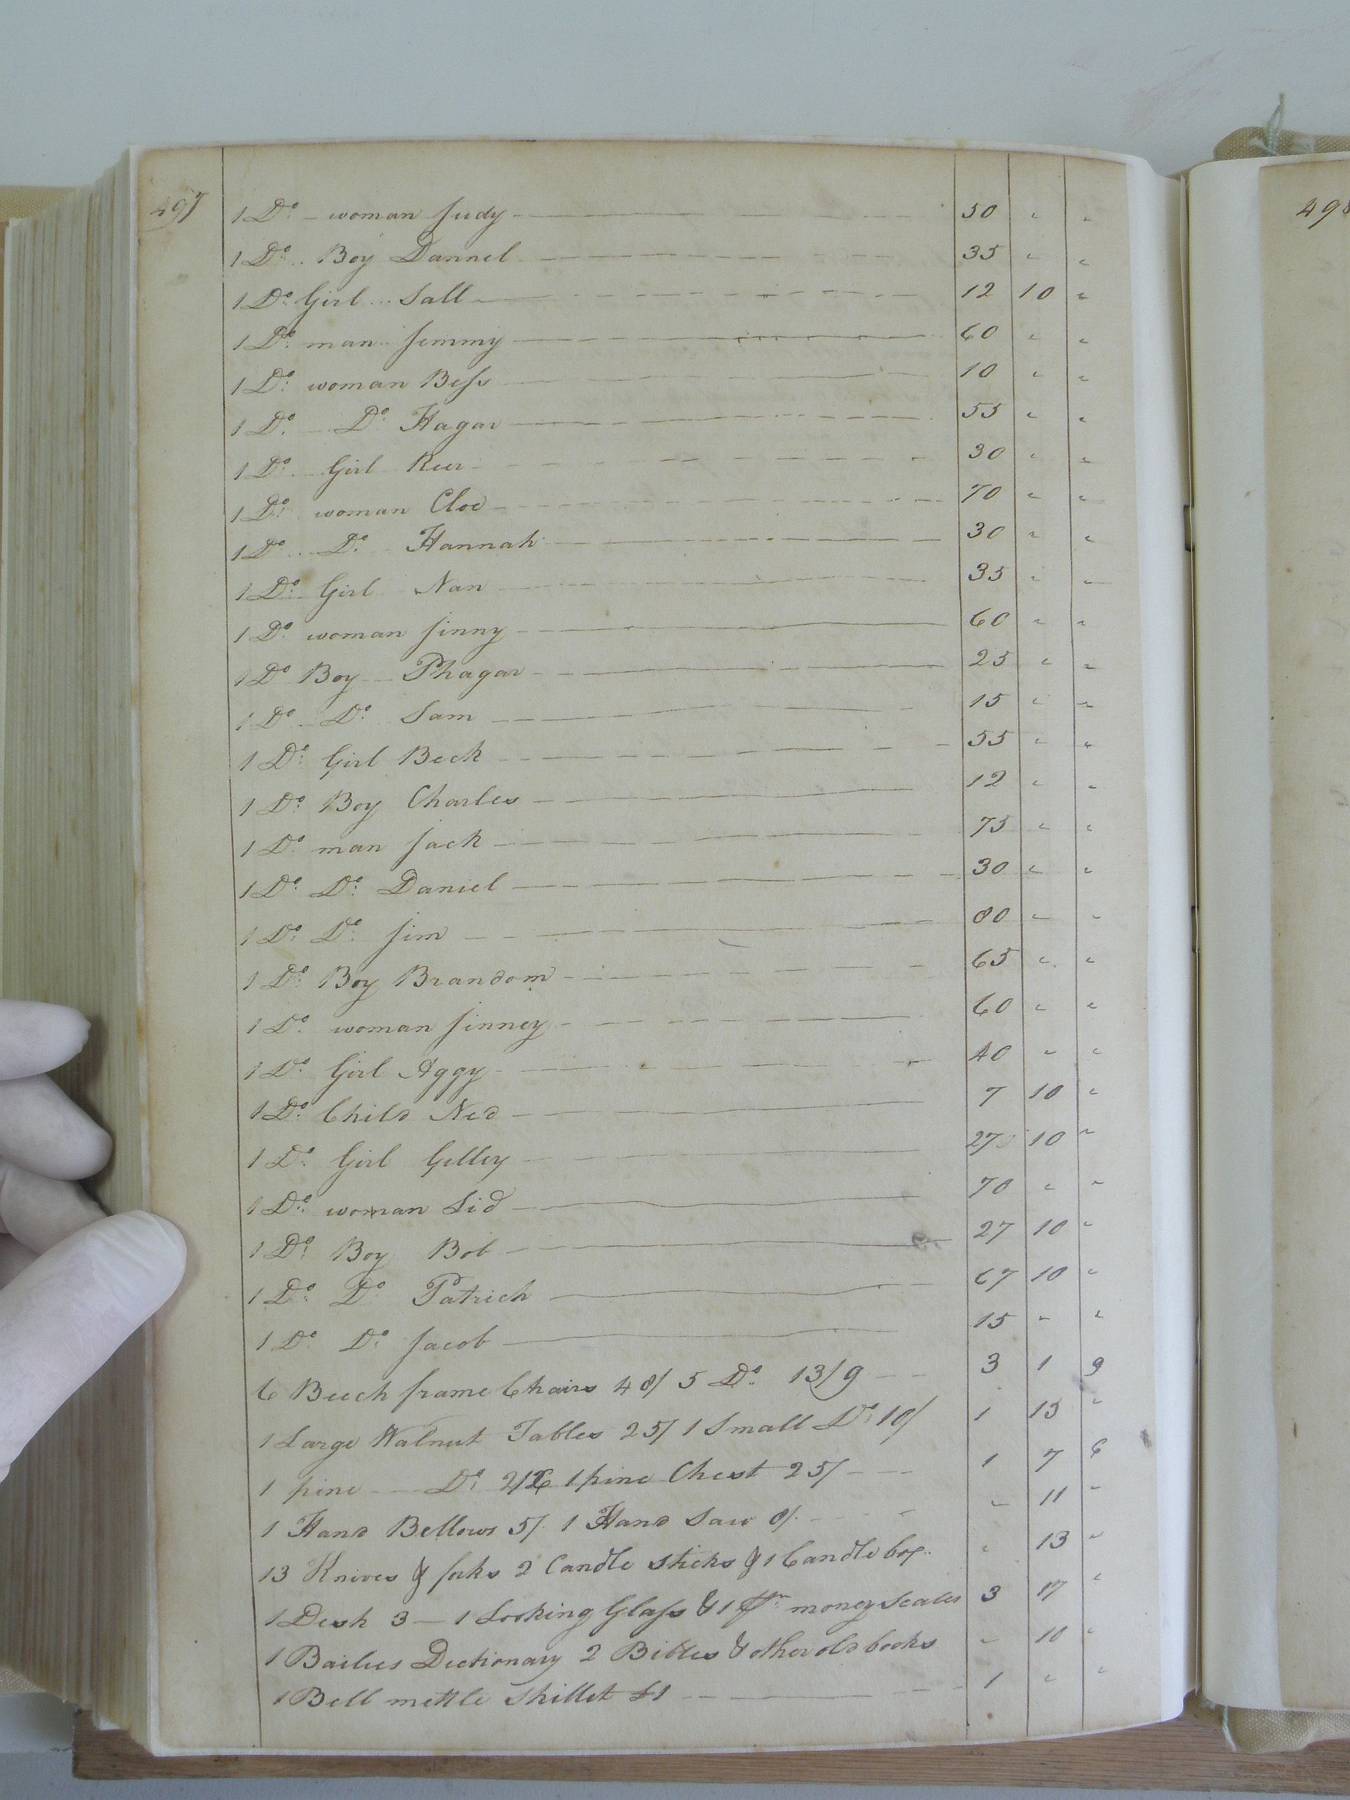 497
1 Do. woman Judy 50 " "
1 Do. Boy Dannel 35 " "
1 Do. Girl Sall 12 10 "
1 Do. man Jimmy 60 " "
1 Do. woman Bess 10 " "
1 Do. Do. Hagar 55 " "
1 Do. Girl 30 " "
1 Do. woman Cloe 70 " "
1 Do. Do. Hannah 30 " "
1 Do. Girl Nan 35 " "
1 Do. woman Jinny 60 " "
1 Do. Boy Phagar 25 " "
1 Do. Do. Sam 15 " "
1 Do. Girl Beck 55 " "
1 Do. Boy Charles 12 " "
1 Do. man Jack 75 " "
1 Do. Do. Daniel 30 " "
1 Do. Do. Jim 80 " "
1 Do. Boy Brandom 65 " "
1 Do. woman Jinney 60 " "
1 Do. Girl Aggy 40 " "
1 Do. Child Ned 7 10 "
1 Do. Girl Gilley 27 10 "
1 Do. woman Sid 70 " "
1 Do. Boy Bob 27 10 "
1 Do. Do. Patrick 67 10 "
1 Do. Do. Jacob 15 " "
6 Beech frame Chairs 48/ 5 Do. 13/9 3 1 9
1 Large Walnut Tables 25/ 1 Small Do. 10/ 1 15 "
1 pine Do. 2/6 1 pine Chest 25/ 1 7 6
1 Hand Bellows 5/. 1 Hand Saw 6/. " 11 "
13 Knives & forks 2 Candle sticks & 1 Candle box " 13 "
1 Desk 3 - 1 Looking Glass & 1 pr. money Scales 3 17 "
1 Bailies Dectionary 2 Bibles & other old books " 10 "
1 Bell mettle Skillet £1 1 " "
498